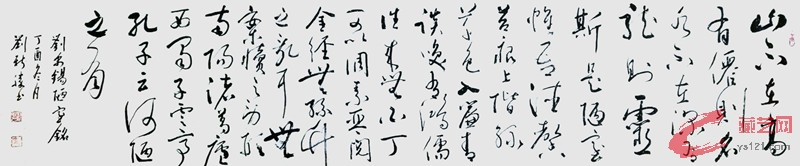 山不在高
有僊則名
水不在深有
龍則靈
斯是陋室
惟吾德馨
苔痕上階綠
草色入簾青
談笑有鴻儒
往來無白丁
可以調素琴閱
金經無絲竹
之亂耳無
案牘之勞形
南陽諸葛廬
西蜀子雲亭
孔子云何陋
之有
劉禹錫陋室銘
丁酉冬月
劉書
艺网
ys121.com